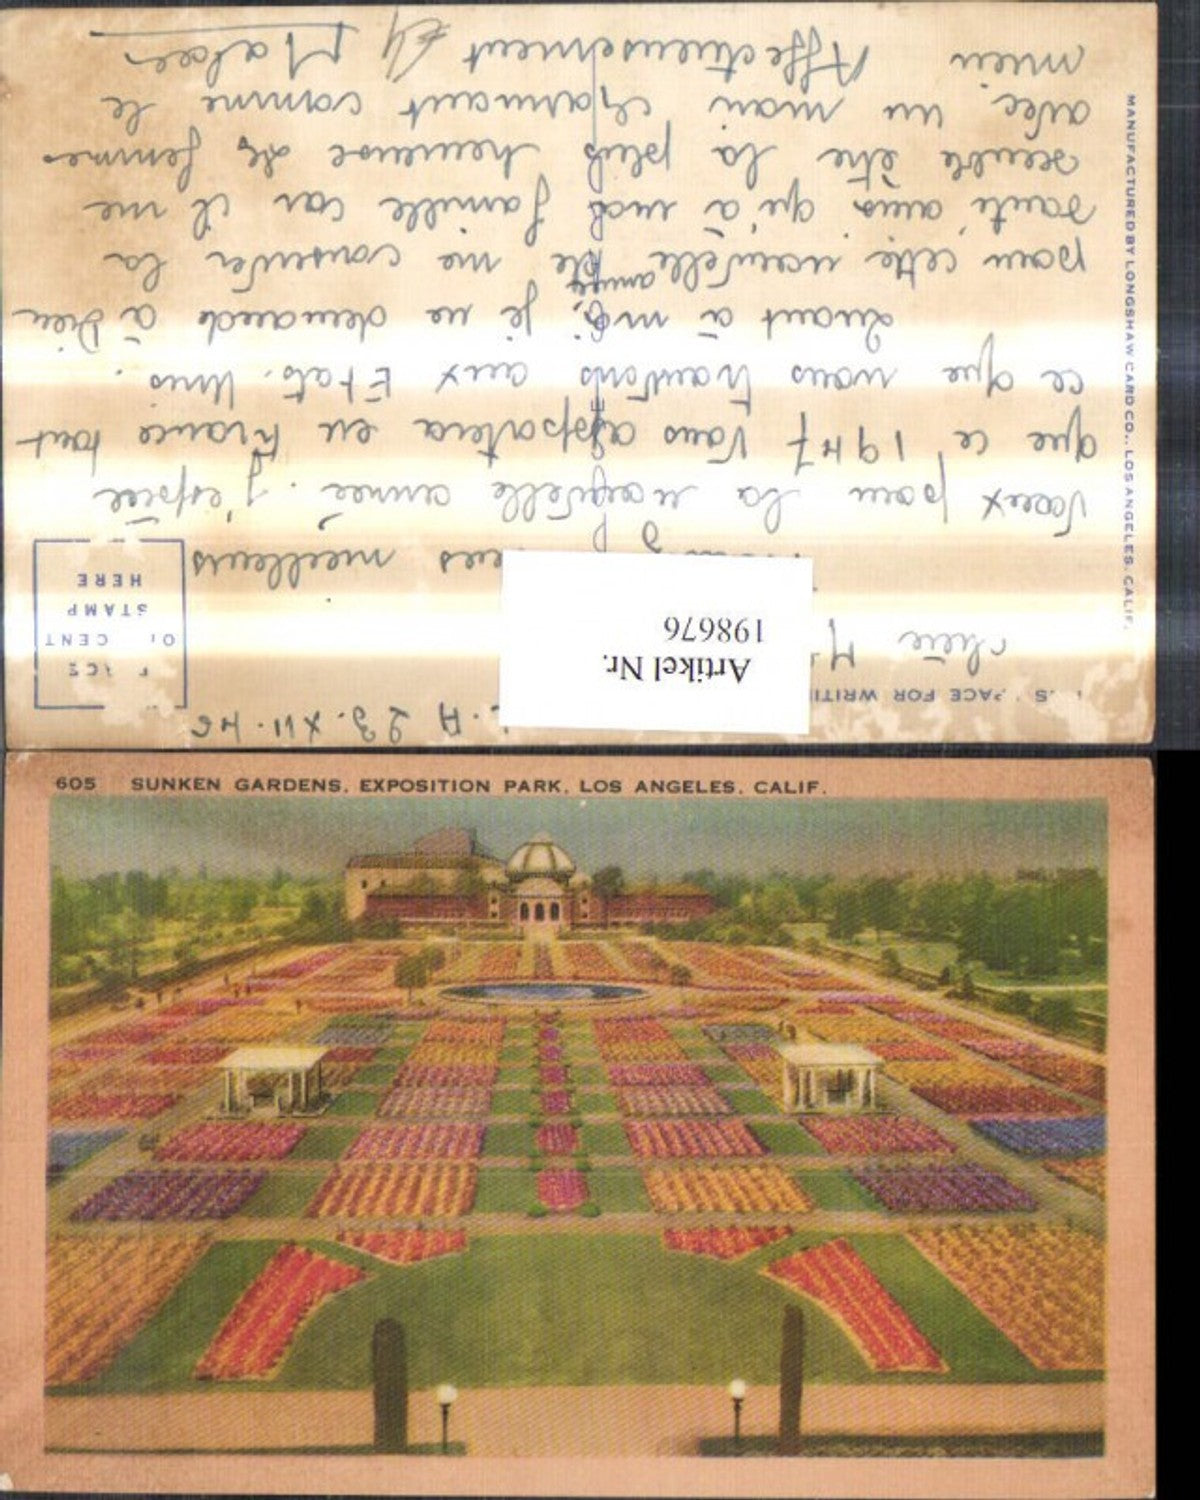 L.A 23.XII.46
THIS SPACE FOR WRITING
PLACE
ONE CENT
STAMP
HERE
Artikel Nr.
198676
Chère M
mes meilleurs
Voeux pour la nouvelle année. J'espère
que ce 1947 Vous apportera en France tout
ce que nous trouvons aux Etats. Unis.
Quant à moi, je ne demande à Dieu
pour cette nouvelle année de me conserver la
santé, ainsi qu'à ma famille car il me
semble être la plus heureuse de femmes
avec un mari charmant comme le
mien Affectueusement
MANUFACTURED BY LONGSHAW CARD CO., LOS ANGELES, CALIF.
605 SUNKEN GARDENS, EXPOSITION PARK, LOS ANGELES, CALIF.